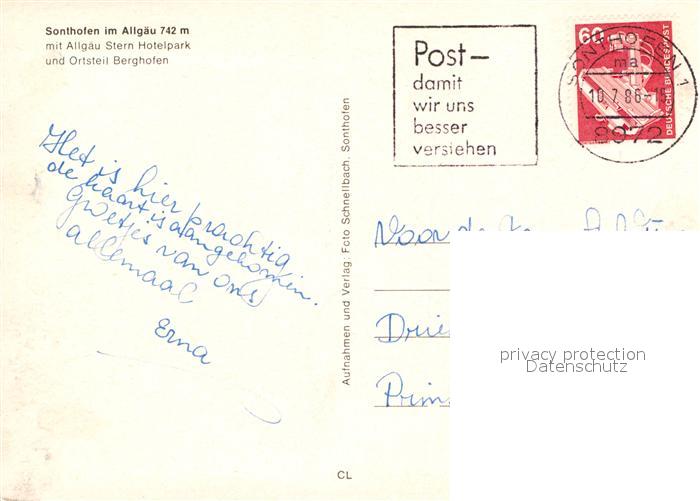 Sonthofen im Allgäu 742 m
mit Allgäu Stern Hotelpark
und Ortsteil Berghofen
Post–
damit
wir uns
besser
verstehen
60
DEUTSCHE BUNDESPOST
SONTHOFEN 1
ma
10.7.86
8972
Het is hier prachtig
de kaart is aangekomen.
Groetjes van ons
allemaal
Erna
Aufnahmen und Verlag: Foto Schnellbach, Sonthofen
Voor de
Prin
privacy protection
Datenschutz
CL